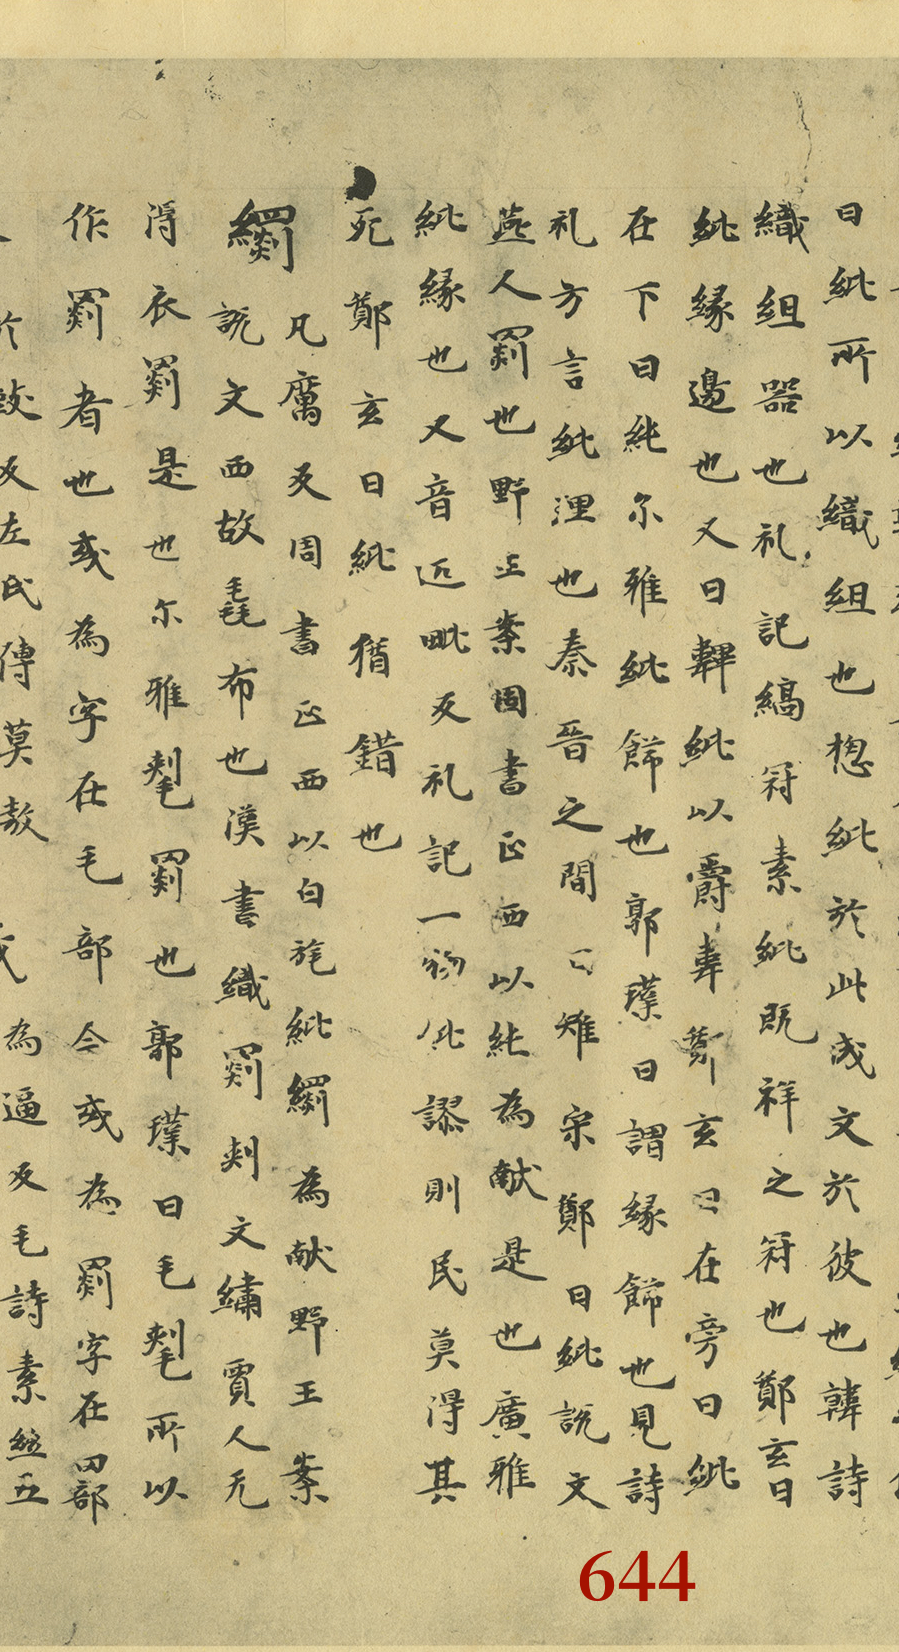 曰紕所以織組也揔紕於此成文於彼也韓詩
織組器也礼記縞冠素紕既祥之冠也鄭玄曰
紕緣邊也又曰韠紕以爵韋鄭玄曰在旁曰紕
在下曰純尒雅紕餙也郭璞曰謂緣餙也見詩
礼方言紕理也秦晉之間曰雉宋鄭曰紕說文
燕人罽也野王案周書正西以紕為獻是也廣雅
紕緣也又音近毗反礼記一物紕謬則民莫得其
死鄭玄曰紕猶錯也
繝 凡厲反周書正西以白旄紕繝為獻野王案
說文西故毳布也漢書織罽刾文繡賈人无
得衣罽是也尒雅氂罽也郭璞曰毛氂所以
作罽者也或為字在毛部今或為罽字在罒部
反左氏傳莫敖 或為逼反毛詩素絲五
644